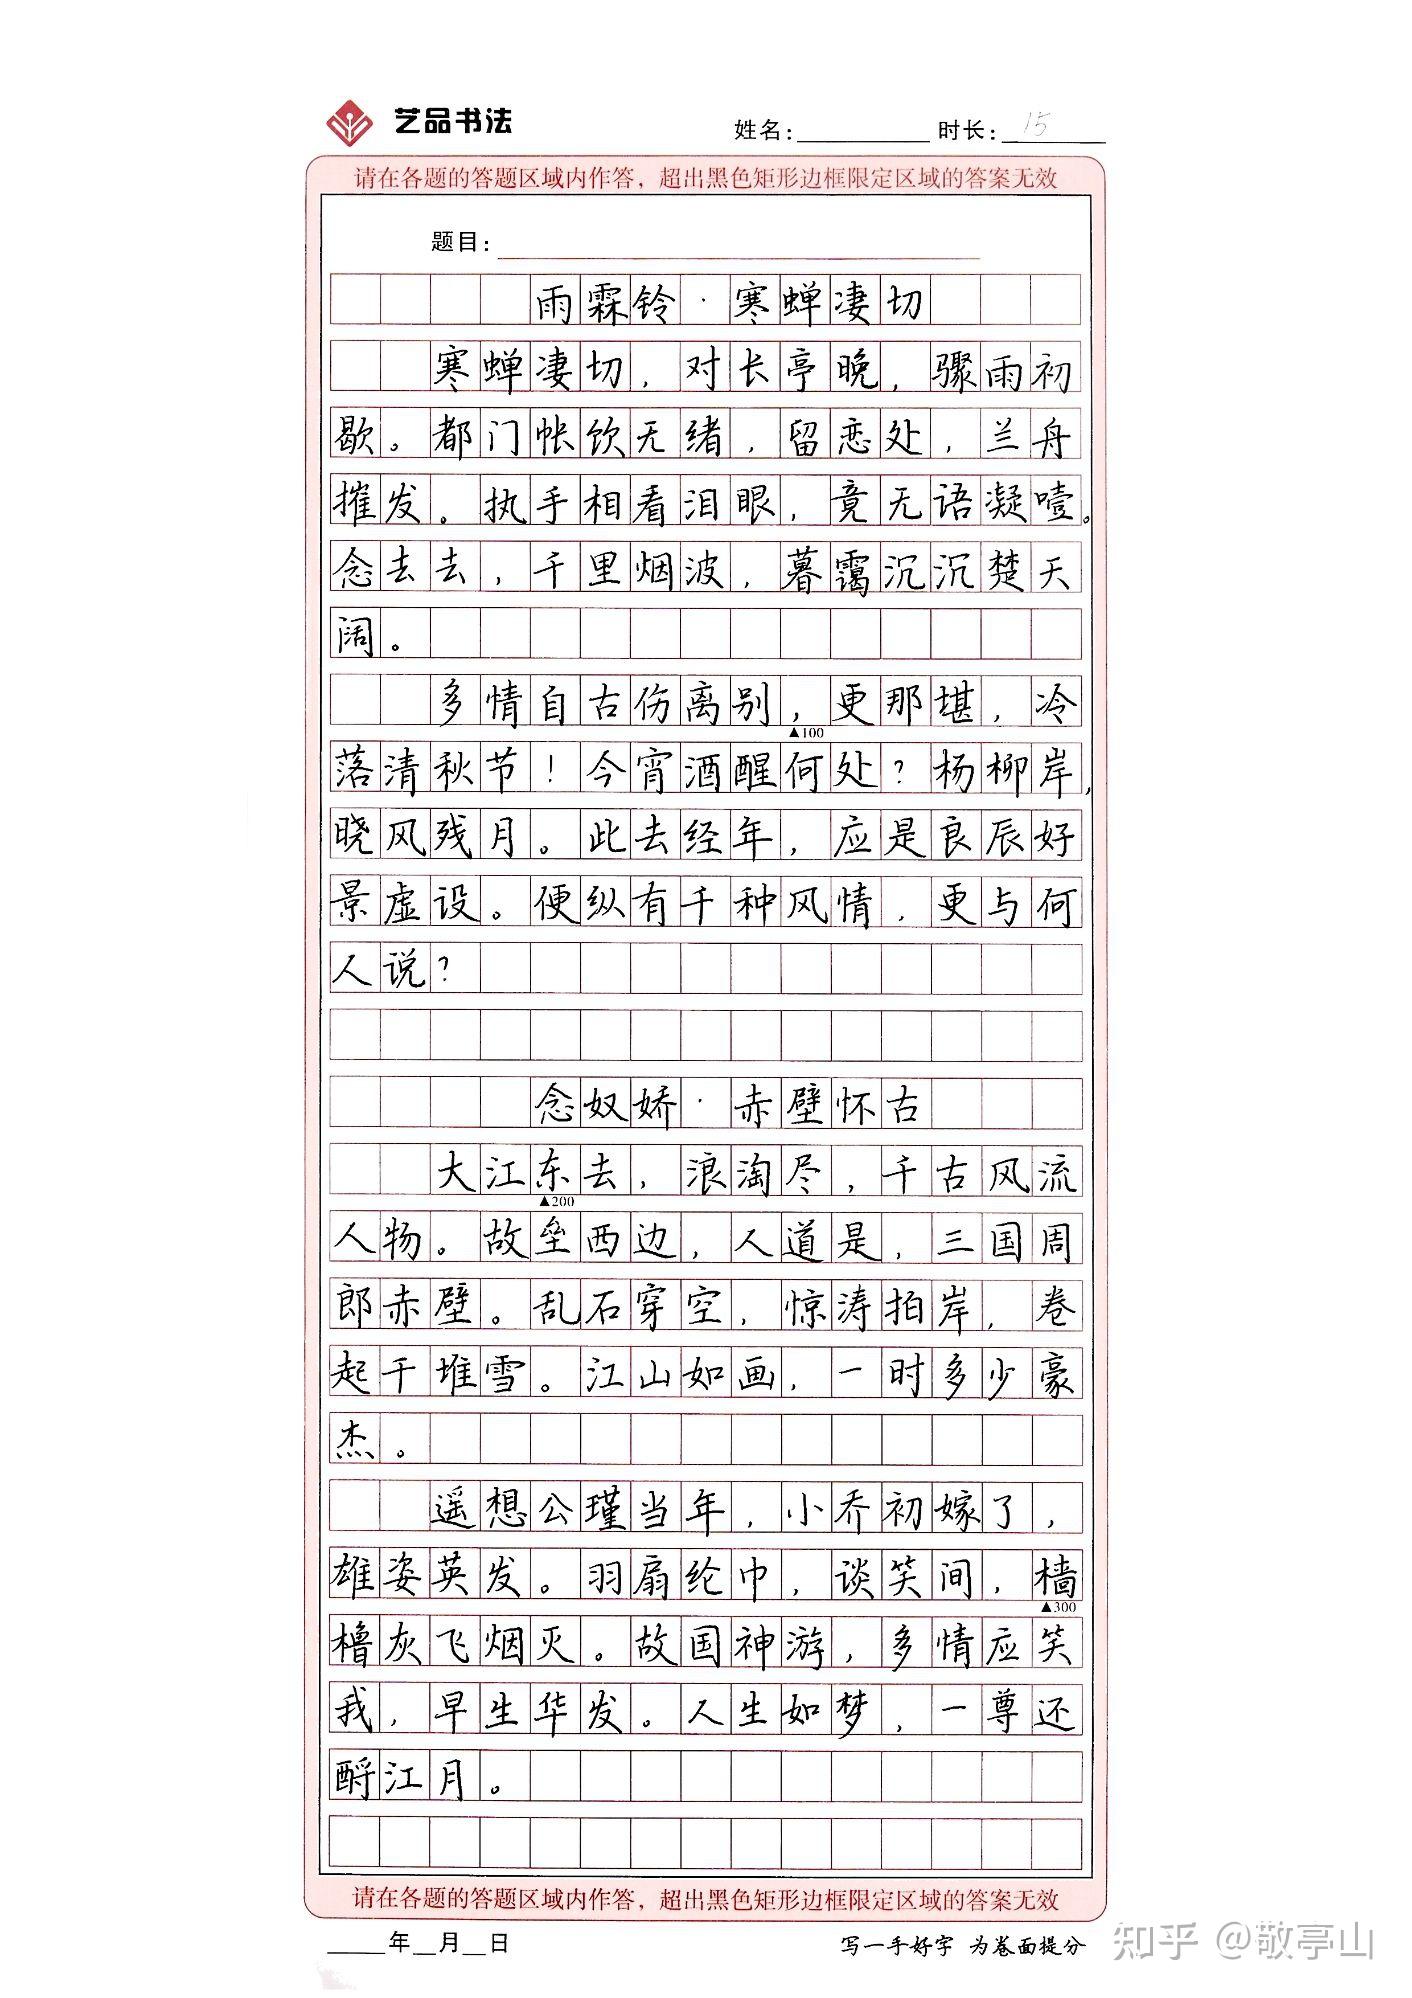 艺品书法
姓名:
时长: 15
请在各题的答题区域内作答，超出黑色矩形边框限定区域的答案无效
题目:
雨霖铃·寒蝉凄切
寒蝉凄切，对长亭晚，骤雨初
歇。都门帐饮无绪，留恋处，兰舟
摧发。执手相看泪眼，竟无语凝噎。
念去去，千里烟波，暮霭沉沉楚天
阔。
多情自古伤离别，更那堪，冷
▲100
落清秋节！今宵酒醒何处？杨柳岸，
晓风残月。此去经年，应是良辰好
景虚设。便纵有千种风情，更与何
人说？
念奴娇·赤壁怀古
大江东去，浪淘尽，千古风流
▲200
人物。故垒西边，人道是，三国周
郎赤壁。乱石穿空，惊涛拍岸，卷
起千堆雪。江山如画，一时多少豪
杰。
遥想公瑾当年，小乔初嫁了，
雄姿英发。羽扇纶巾，谈笑间，樯
▲300
橹灰飞烟灭。故国神游，多情应笑
我，早生华发。人生如梦，一尊还
酹江月。
请在各题的答题区域内作答，超出黑色矩形边框限定区域的答案无效
年 月 日
写一手好字 为卷面提分
知乎 @敬亭山